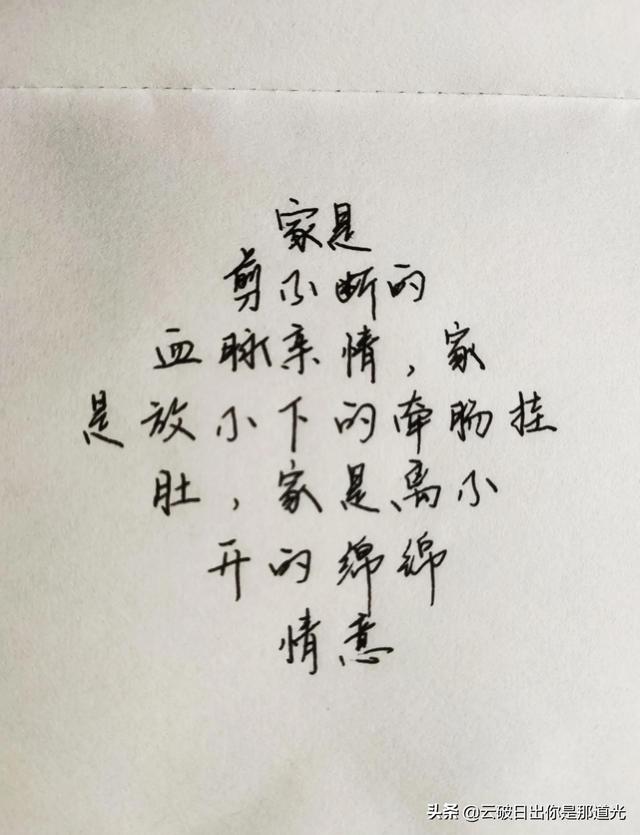 家是
剪不断的
血脉亲情，家
是放不下的牵肠挂
肚，家是离不
开的绵绵
情意
头条 @云破日出你是那道光